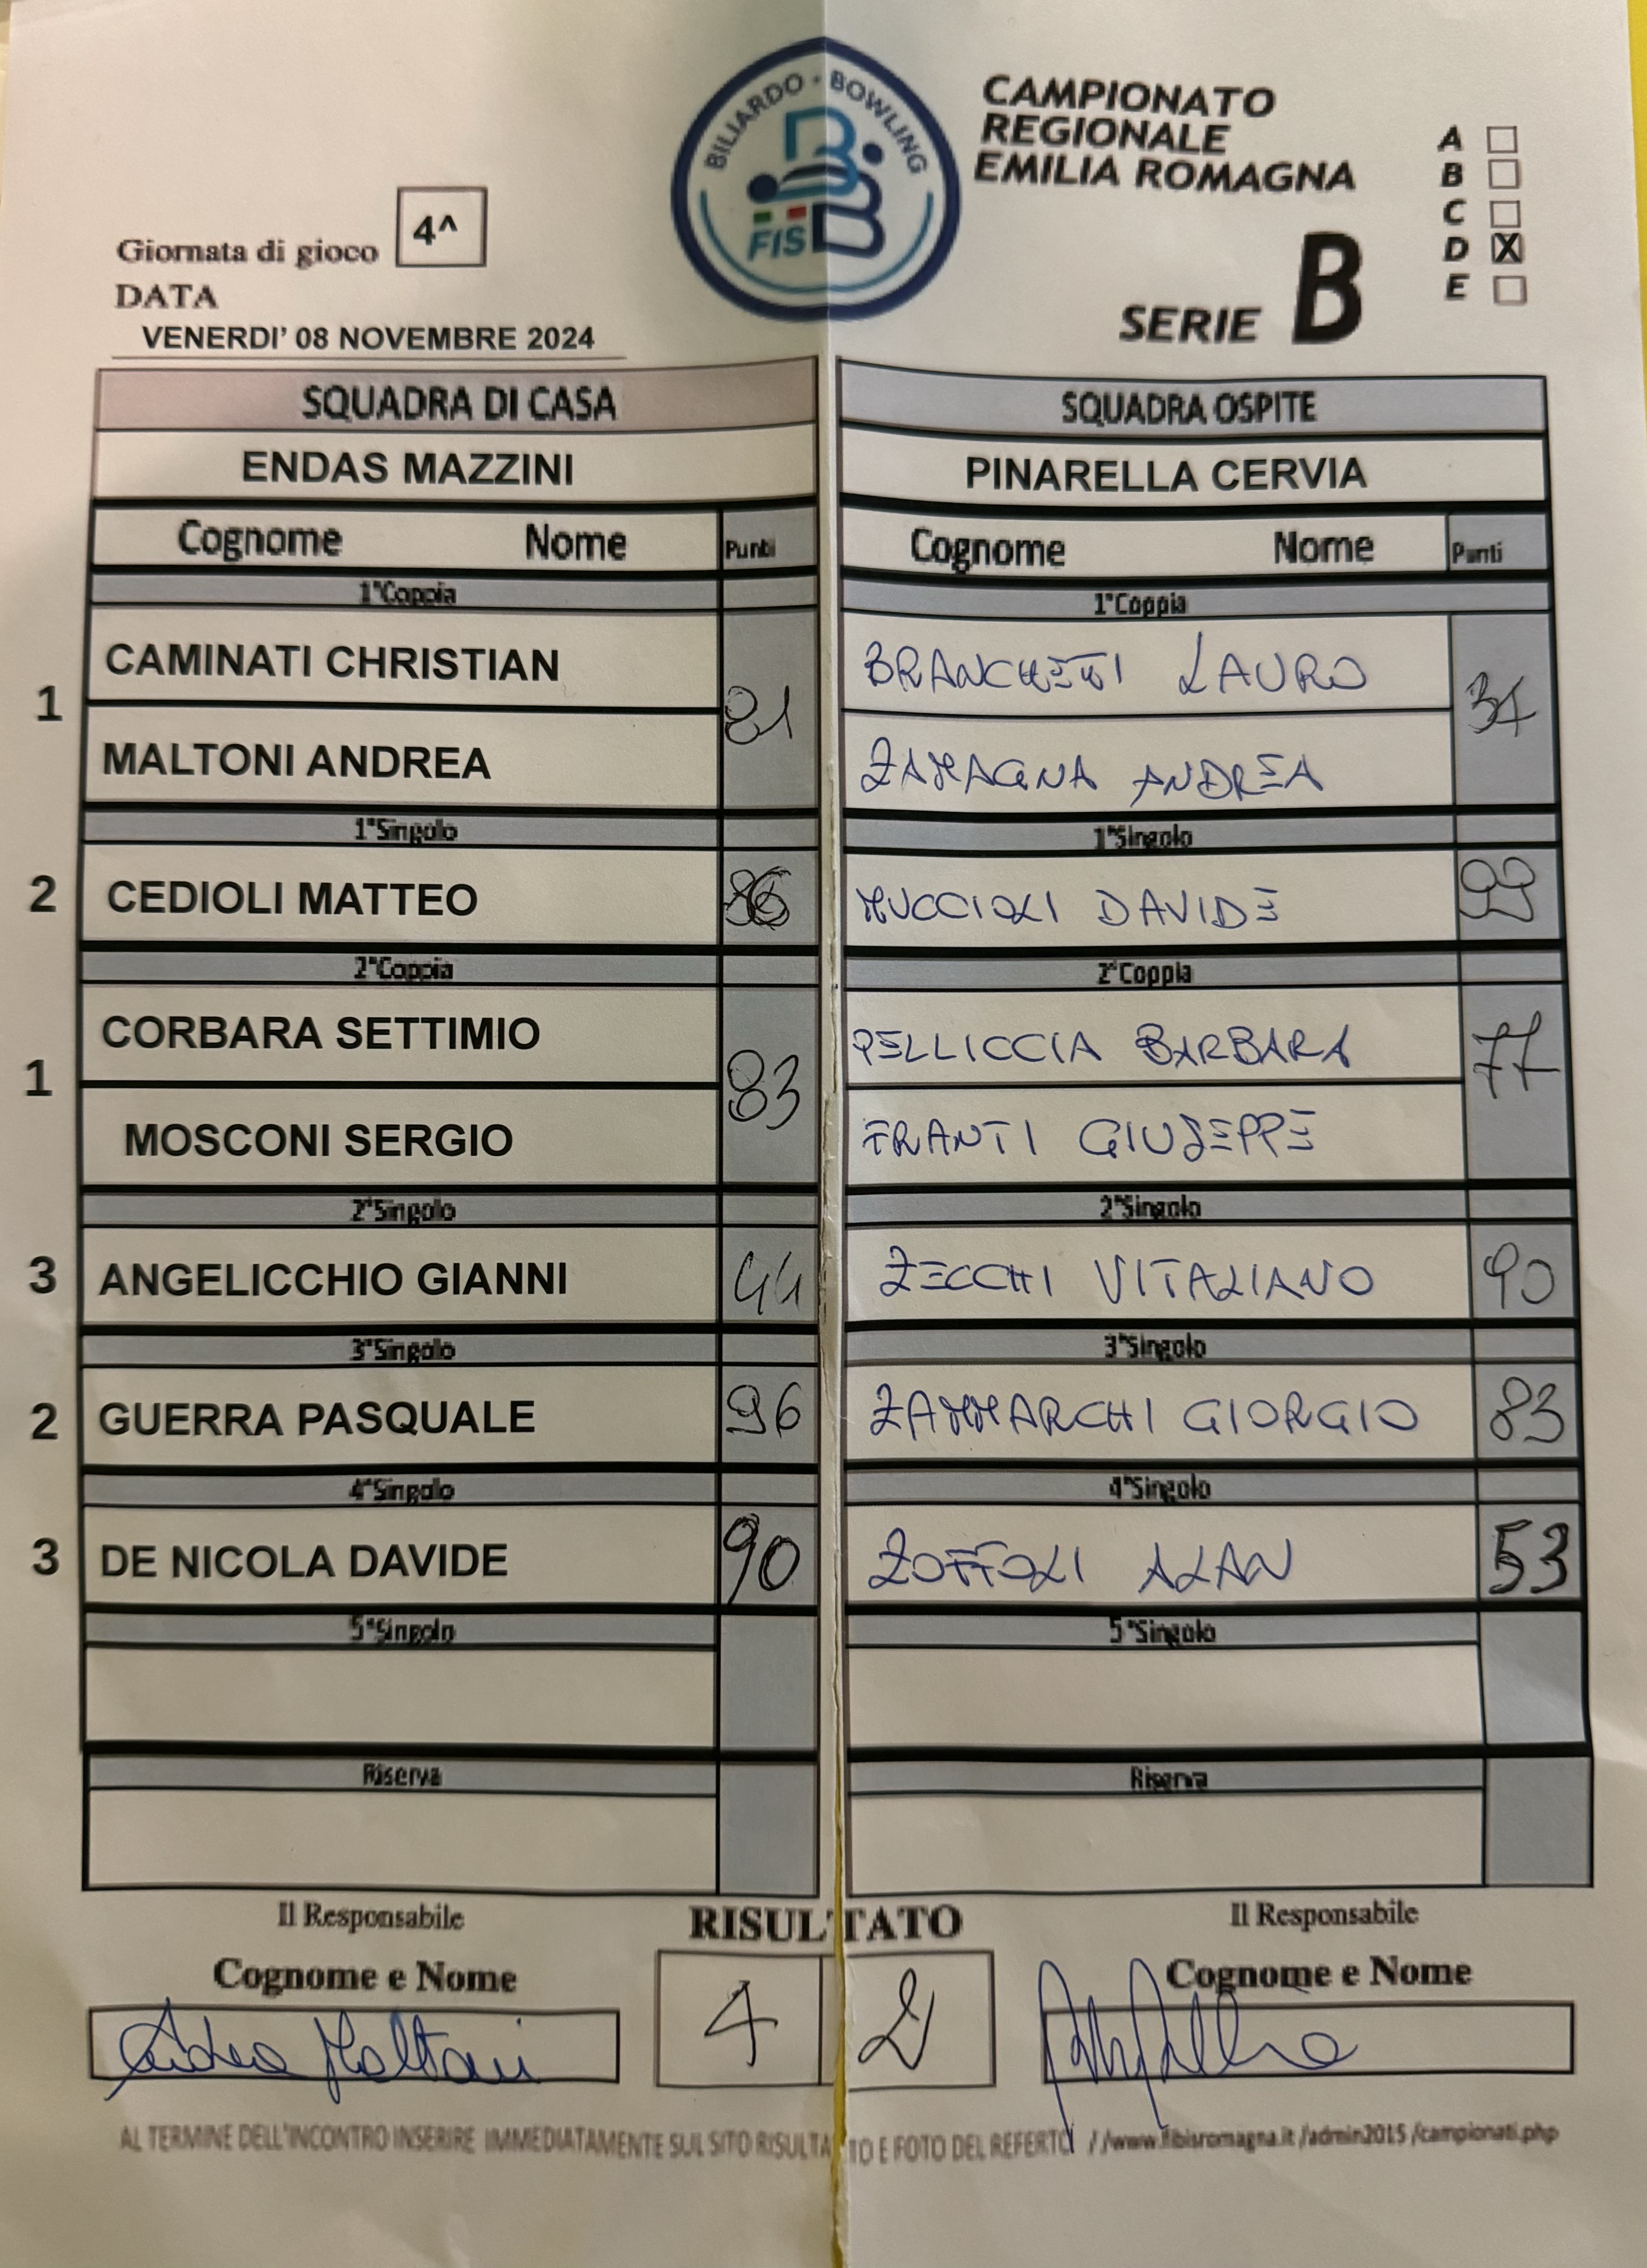 BILIARDO - BOWLING
FISBB
CAMPIONATO
REGIONALE
EMILIA ROMAGNA
SERIE B
A
B
C
D X
E
Giornata di gioco 4^
DATA
VENERDI' 08 NOVEMBRE 2024
SQUADRA DI CASA SQUADRA OSPITE
ENDAS MAZZINI PINARELLA CERVIA
Cognome Nome Punti Cognome Nome Punti
1°Coppia 1°Coppia
1 CAMINATI CHRISTIAN 81 BRANCHETTI LAURO 34
MALTONI ANDREA ZAMAGNA ANDREA
1°Singolo 1°Singolo
2 CEDIOLI MATTEO MUCCIOLI DAVIDE 99
2°Coppia 2°Coppia
1 CORBARA SETTIMIO 83 PELLICCIA BARBARA 77
MOSCONI SERGIO FRANTI GIUSEPPE
2°Singolo 2°Singolo
3 ANGELICCHIO GIANNI 44 ZECCHI VITALIANO 90
3°Singolo 3°Singolo
2 GUERRA PASQUALE 96 ZAMMARCHI GIORGIO 83
4°Singolo 4°Singolo
3 DE NICOLA DAVIDE 90 ZOFFOLI ALAN 53
5°Singolo 5°Singolo
Riserva Riserva
Il Responsabile RISULTATO Il Responsabile
Cognome e Nome Cognome e Nome
Andrea Maltoni 4 2
AL TERMINE DELL'INCONTRO INSERIRE IMMEDIATAMENTE SUL SITO RISULTATO E FOTO DEL REFERTO //www.fibisromagna.it /admin2015 /campionati.php